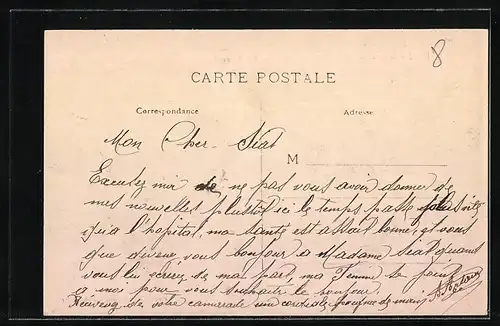 8
CARTE POSTALE
Correspondance
Adresse
Mon Cher Siat
M
Excusez mir de ne pas vous avoir donner de
mes nouvelles plustot ici le temps passe plus vite
qu'a l'hopital, ma santé est assait bonne, et vous
que devené, vous bonjour a Madame Siat quand
vous lui écrirez, de ma part, ma femme le joint
a moi pour vous souhaiter le bonjour.
Recevez de votre camarade une cordiale poignée de main